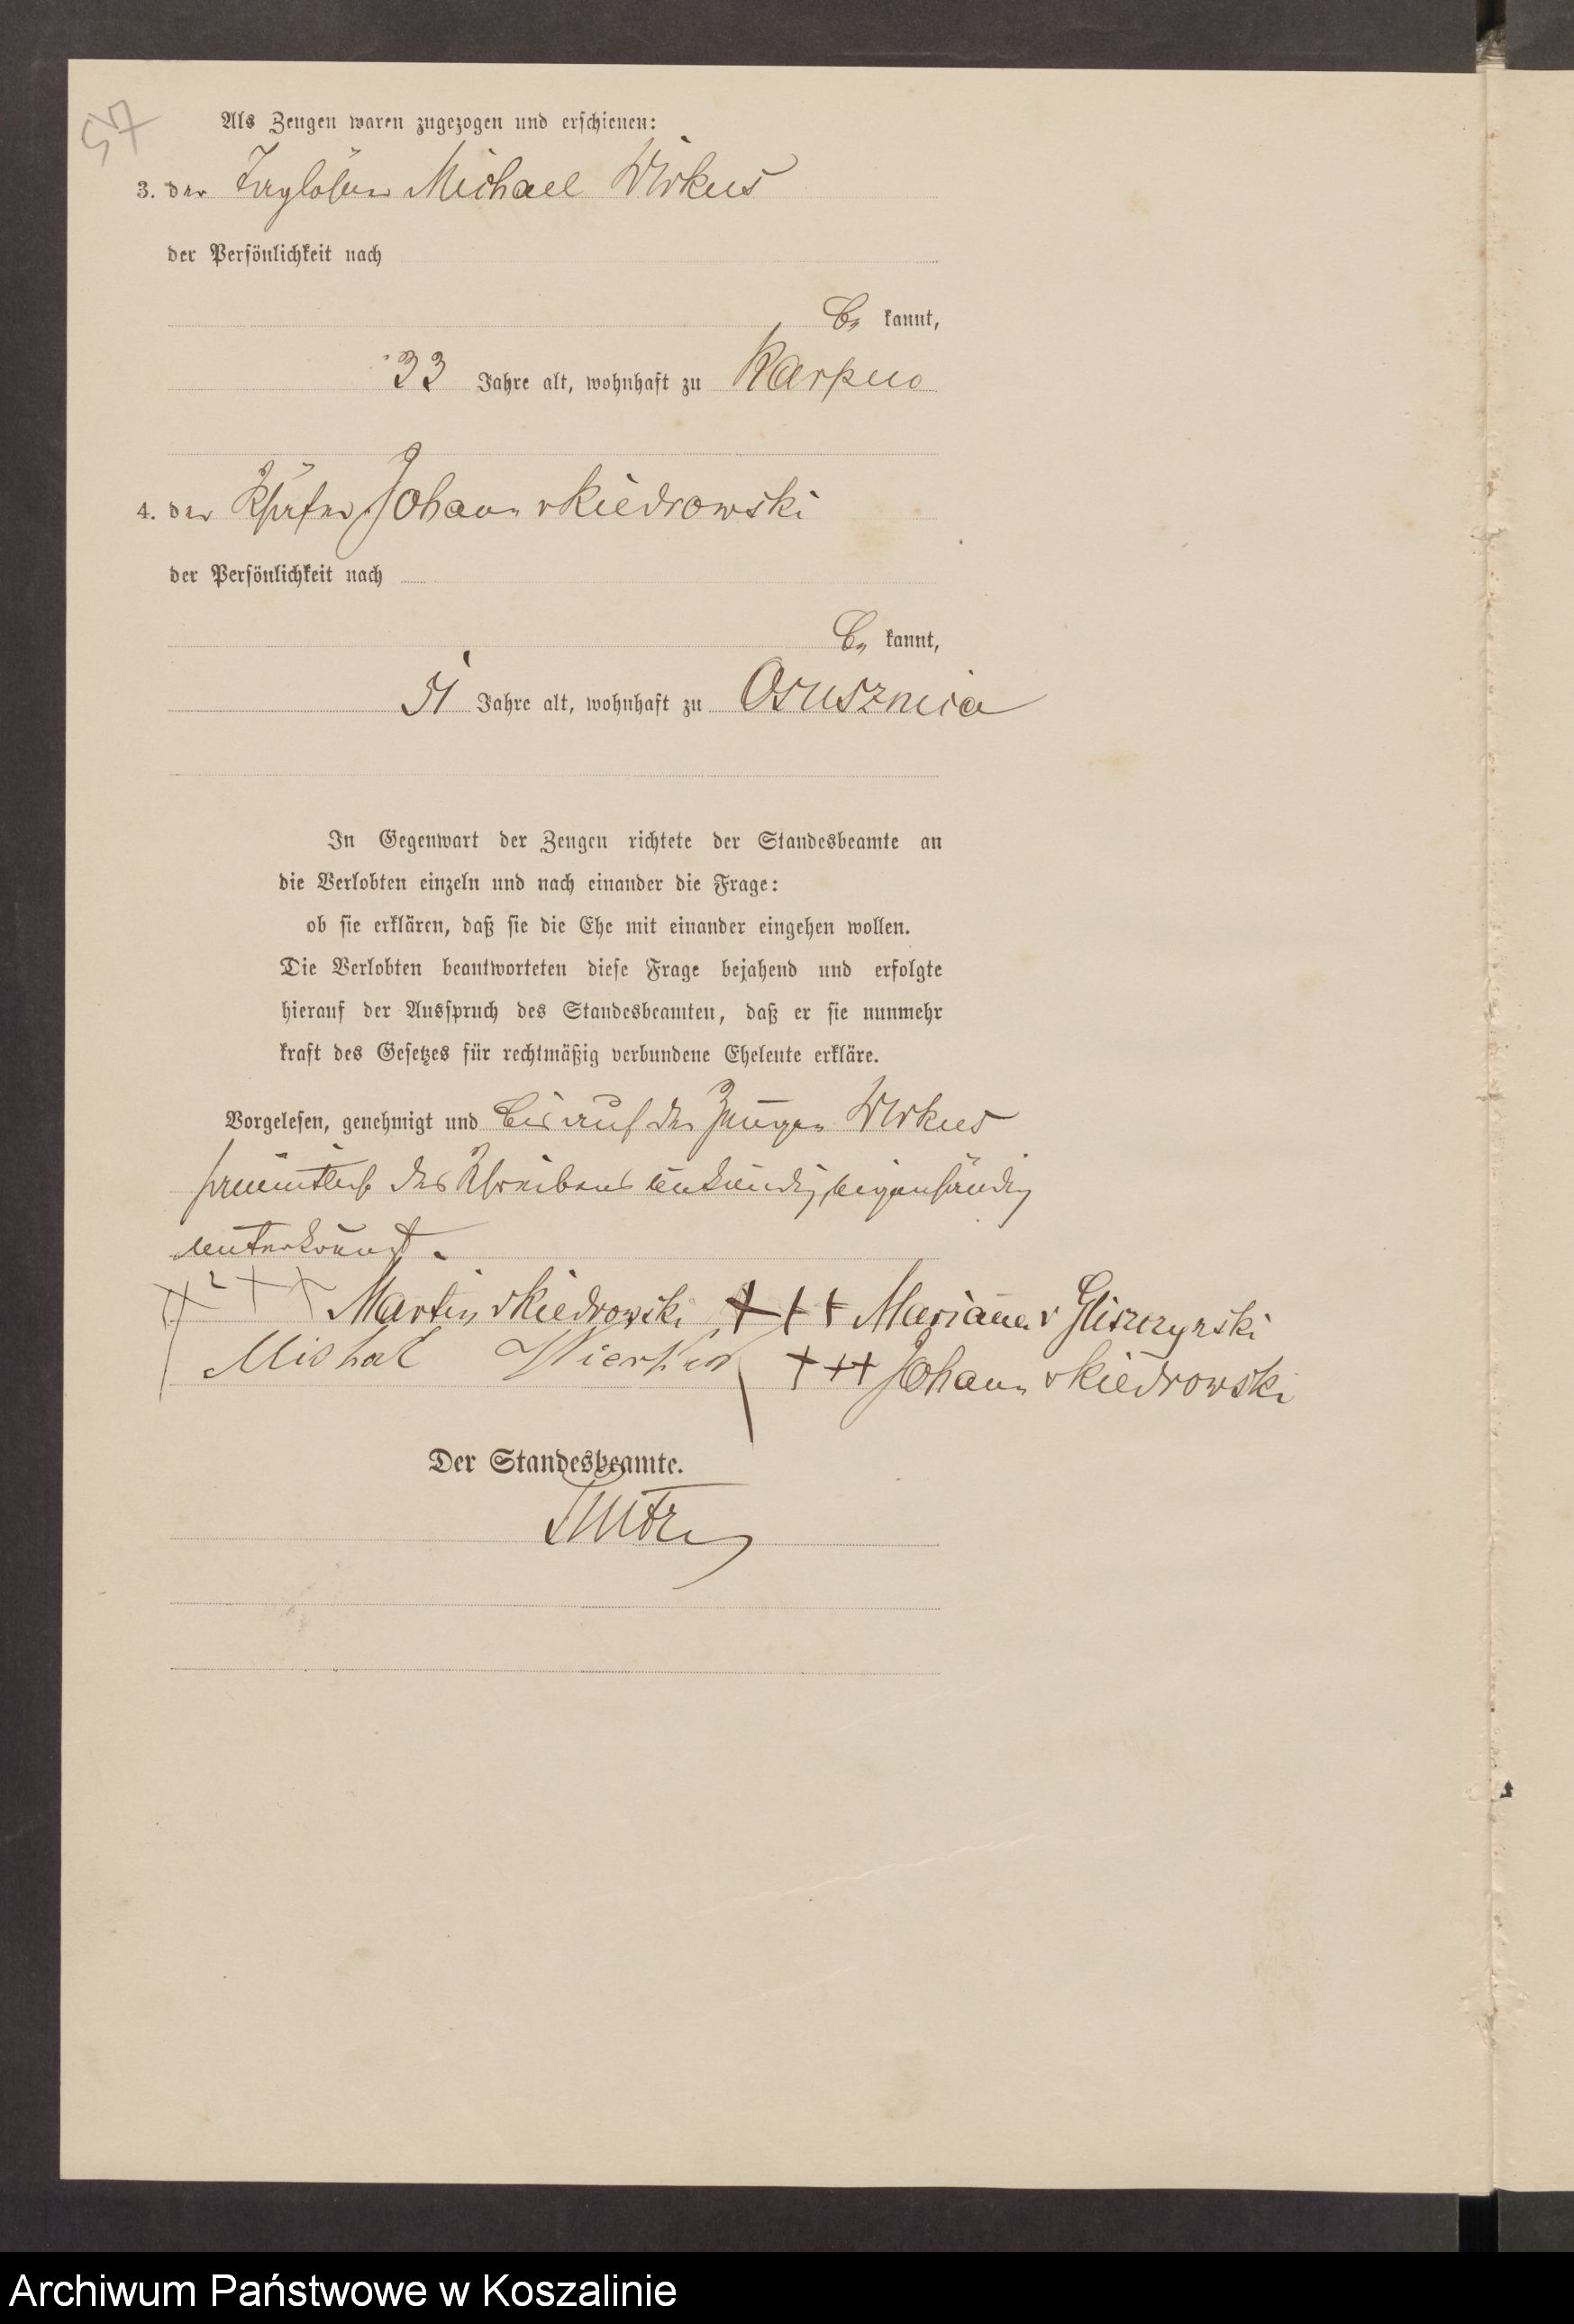 57
Als Zeugen waren zugezogen und erschienen:
3. der Taglöhner Michael Wirkus
der Persönlichkeit nach
be kannt,
33 Jahre alt, wohnhaft zu Karpno
4. der Johann v Kiedrowski
der Persönlichkeit nach
be kannt,
51 Jahre alt, wohnhaft zu Osusznica
In Gegenwart der Zeugen richtete der Standesbeamte an
die Verlobten einzeln und nach einander die Frage:
ob sie erklären, daß sie die Ehe mit einander eingehen wollen.
Die Verlobten beantworteten diese Frage bejahend und erfolgte
hierauf der Ausspruch des Standesbeamten, daß er sie nunmehr
kraft des Gesetzes für rechtmäßig verbundene Eheleute erkläre.
Vorgelesen, genehmigt und bis auf den Zeugen Wirkus
sämmtlich des Schreibens unkundig eigenhändig
unterkreuzt.
+++ Martin v Kiedrowski +++ Marianna v Gliszczynski
Michal +++ Johann v Kiedrowski
Der Standesbeamte.
Archiwum Państwowe w Koszalinie